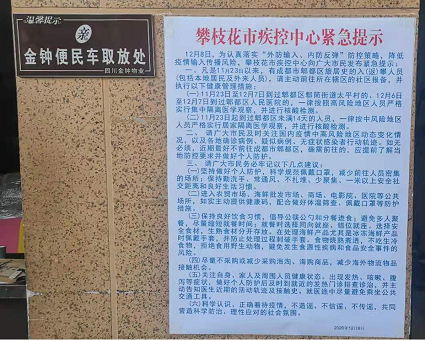 温馨提示
亲
金钟便民车取放处
四川金钟物业
攀枝花市疾控中心紧急提示
12月8日，为认真落实“外防输入、内防反弹”防控策略，降低
疫情输入传播风险，攀枝花市疾控中心向广大市民发布紧急提示：
一、凡是11月23日以来，有成都市郫都区旅居史的入(返)攀人员
(包括本地居民及外来人员)，请主动前往所在辖区的社区报备，并
执行以下健康管理措施：
(一)11月23日至12月7日到过郫都区郫筒街道太平村的，12月6日
至12月7日到过郫都区人民医院的，一律按照高风险地区人员严格实
行集中隔离医学观察，并进行核酸检测。
(二)11月23日起到过郫都区未满14天的人员，一律按中风险地区
人员严格实行居家隔离医学观察，并进行核酸检测。
二、请广大市民及时关注国内疫情中高风险地区动态变化情
况，以及各地确诊病例、疑似病例、无症状感染者行动轨迹。如无
必须，近期最好不前往成都市郫都区，确需前往的，应提前了解当
地防控要求并做好个人防护。
三、请广大市民务必牢记以下几点建议：
(一)坚持做好个人防护，科学规范佩戴口罩，减少前往人员密集
的场所。保持勤洗手、常通风、不扎堆、少聚集、一米以上安全社
交距离和良好生活习惯。
(二)进入农贸市场、海鲜批发市场、商场、电影院、医院等公共
场所，如实主动提供健康码，配合做好体温筛查，佩戴口罩等防护
措施。
(三)保持良好饮食习惯，倡导公筷公勺和分餐进食；避免多人聚
餐，尽量缩短就餐时间，就餐时选择同向就座、错位就座，选择安
全食材，生熟食材分开存放，在处理海鲜产品尤其是冰冻海鲜产品
时佩戴手套，并防止处理过程割破手套。食物烧熟煮透，不吃生冷
食物，拒绝食用野生动物，避免发生食源性疾病和食品安全事件的
风险。
(四)尽量不采购或减少采购海淘、海购商品，减少海外物流物品
接触机会。
(五)关注自身、家人及周围人员健康状态，出现发热、咳嗽、腹
泻等症状，做好个人防护后及时到就近的发热门诊排查诊治，并主
动告知医生近期的活动轨迹及接触史。就医途中尽量避免乘坐公共
交通工具。
(六)科学认识、正确看待疫情，不造谣、不信谣、不传谣，共同
营造科学防治、理性应对的社会氛围。
2020年12月8日